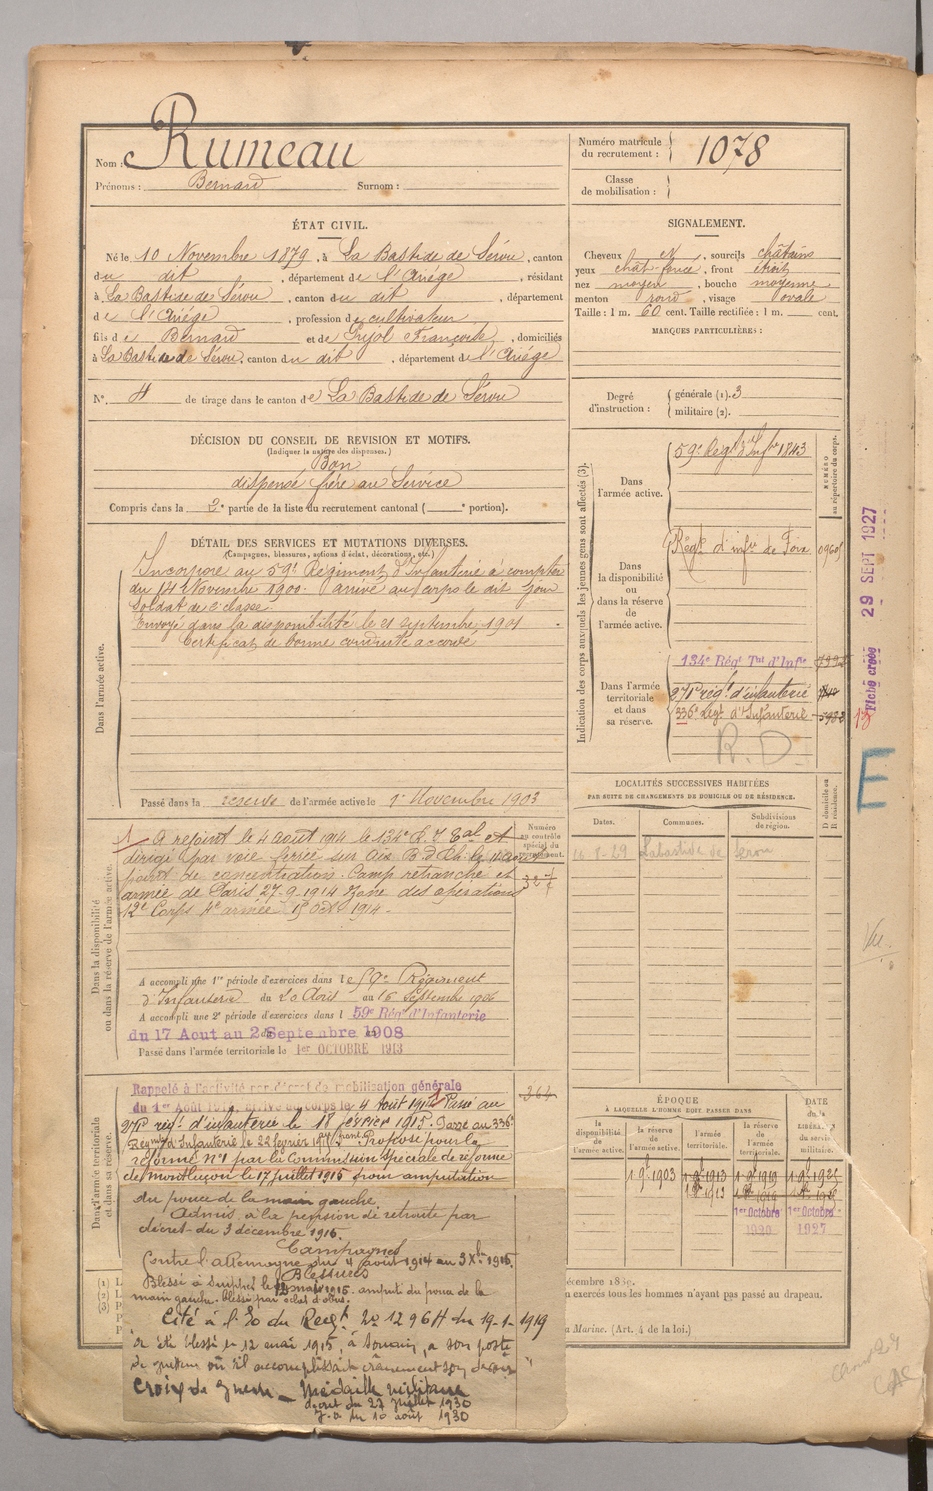 Nom : Rumeau
Prénoms : Bernard Surnom :
Numéro matricule
du recrutement : 1078
Classe
de mobilisation :
ÉTAT CIVIL.
Né le 10 Novembre 1879, à La Bastide de Sérou, canton
du dit, département de l'Ariége, résidant
à La Bastide de Sérou, canton du dit, département
de l'Ariége, profession de cultivateur
fils de Bernard et de Pujol Françoise, domiciliés
à La Bastide de Sérou, canton du dit, département de l'Ariége
N°. 4 de tirage dans le canton de La Bastide de Sérou
SIGNALEMENT.
Cheveux et, sourcils châtains
yeux chât foncé, front étroit
nez moyen, bouche moyenne
menton rond, visage ovale
Taille : 1 m. 60 cent. Taille rectifiée : 1 m. cent.
MARQUES PARTICULIÈRES :
Degré
d'instruction :
générale (1). 3
militaire (2).
DÉCISION DU CONSEIL DE REVISION ET MOTIFS.
(Indiquer la nature des dispenses.)
Bon
dispensé frère au Service
Compris dans la 2e partie de la liste du recrutement cantonal ( portion).
DÉTAIL DES SERVICES ET MUTATIONS DIVERSES.
(Campagnes, blessures, actions d'éclat, décorations, etc.)
Dans l'armée active.
Incorporé au 59e Régiment d'Infanterie à compter
du 14 Novembre 1900. arrivé au corps le dit jour
Soldat de 2e classe.
Envoyé dans la disponibilité le 21 septembre 1901
Certificat de bonne conduite accordé
Passé dans la réserve de l'armée active le 1er Novembre 1903
Indication des corps auxquels les jeunes gens sont affectés (3).
NUMÉRO
au répertoire du corps.
Dans
l'armée active.
59e Régt d'Infie 1843
Dans
la disponibilité
ou
dans la réserve
de
l'armée active.
Régt d'infie de Foix
Dans l'armée
territoriale
et dans
sa réserve.
134e Régt Tal d'Infie
271e régt d'infanterie
336e Régt d'Infanterie
R. D.
Fiche créée 29 SEPT 1927
E
LOCALITÉS SUCCESSIVES HABITÉES
PAR SUITE DE CHANGEMENTS DE DOMICILE OU DE RÉSIDENCE.
Dates. Communes. Subdivisions
de région.
D domicile ou
R résidence.
Labastide de Serou
Dans la disponibilité
ou dans la réserve de l'armée active.
Numéro
au contrôle
spécial du
A rejoint le 4 août 1914 le 134e R. I. Tal et
dirigé par voie ferrée sur Aix
point de concentration. Camp retranché et
armée de Paris 27-9-1914 zone des opérations
12e Corps 4e armée 15 Oct 1914.
A accompli une 1re période d'exercices dans le 59e Régiment
d'Infanterie du 20 Août au 16 Septembre 1906
A accompli une 2e période d'exercices dans l 59e Régt d'Infanterie
du 17 Aout au 2 Septembre 1908
Passé dans l'armée territoriale le 1er OCTOBRE 1913
Dans l'armée territoriale
et dans sa réserve.
Rappelé à l'activité par décret de mobilisation générale
du 1er Août 1914, arrivé au corps le 4 Août 1914 Passé au
271e régt d'infanterie le 18 février 1915. Passé au 336e
Régiment d'Infanterie le 22 février 1915. Proposé pour la
réforme N°1 par la Commission spéciale de réforme
de Montluçon le 17 juillet 1915 pour amputation
du pouce de la main gauche.
Admis à la pension de retraite par
décret du 3 décembre 1916.
Campagnes
Contre l'allemagne du 4 août 1914 au 3 Xbre 1916.
Blessures
Blessé à Souain le 12 mai 1915. amputé du pouce de la
main gauche. blessé par éclat d'obus.
Cité à l'O du Regt No 1296H du 19-1-1919
a été blessé en 12 mai 1915, à Souain, à son poste
de guetteur où il accomplissait crânement son devoir
Croix de guerre _ Médaille militaire
décret du 27 juillet 1930
J.O du 10 août 1930
ÉPOQUE
À LAQUELLE L'HOMME DOIT PASSER DANS
la
disponibilité
de
l'armée active.
la réserve
de
l'armée active.
l'armée
territoriale.
la réserve
de
l'armée
territoriale.
DATE
de la
LIBÉRATION
du service
militaire.
1903 1913 1919 1925
1er Octobre 1er Octobre
1920 1927
(1)
(2)
(3)
décembre 1889.
n exercés tous les hommes n'ayant pas passé au drapeau.
a Marine. (Art. 4 de la loi.)
Vu.